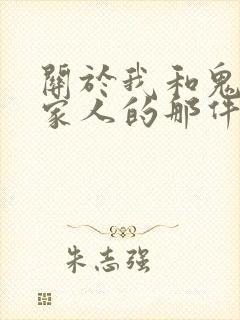 關於我和鬼
家人的那件
朱志强